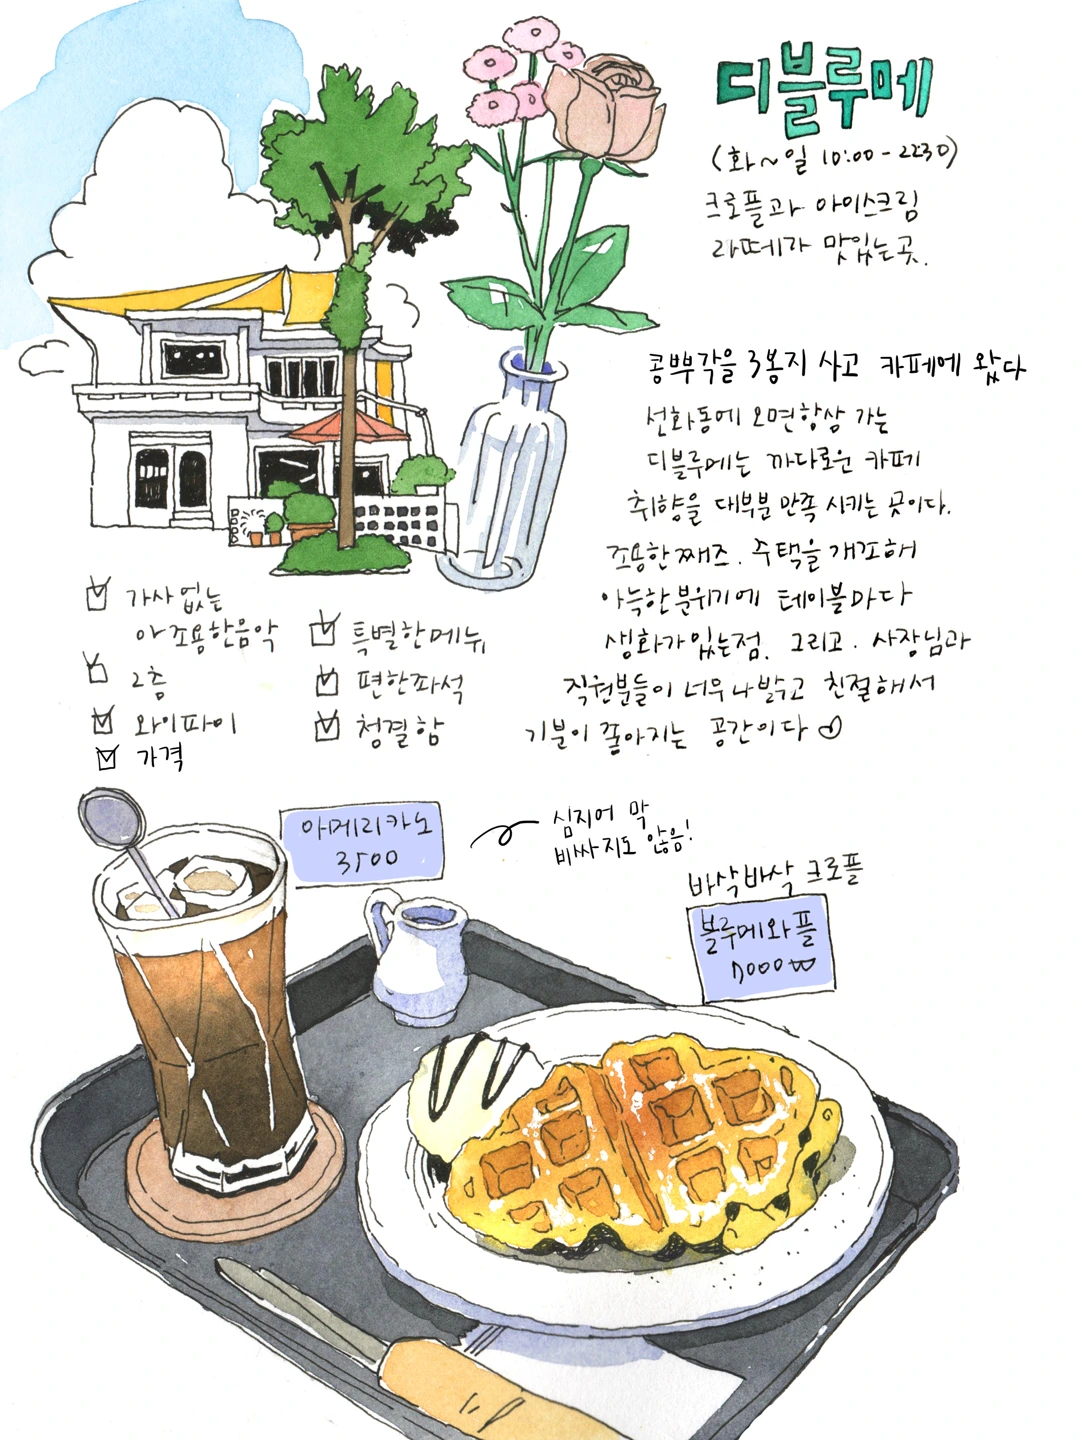 디블루메
(화~일 10:00-2230)
크로플과 아이스크림
라떼가 맛있는곳.
콩부각을 3봉지 사고 카페에 왔다
선화동에 오면 항상 가는
디블루메는 까다로운 카페
취향을 대부분 만족 시키는 곳이다.
조용한 째즈. 주택을 개조해
아늑한 분위기에 테이블마다
생화가 있는점. 그리고. 사장님과
직원분들이 너무나 밝고 친절해서
기분이 좋아지는 공간이다
가사 없는
아 조용한음악
2층
와이파이
가격
특별한메뉴
편한좌석
청결함
아메리카노
3500
심지어 막
비싸지도 않음!
바삭바삭 크로플
블루메와플
7000₩